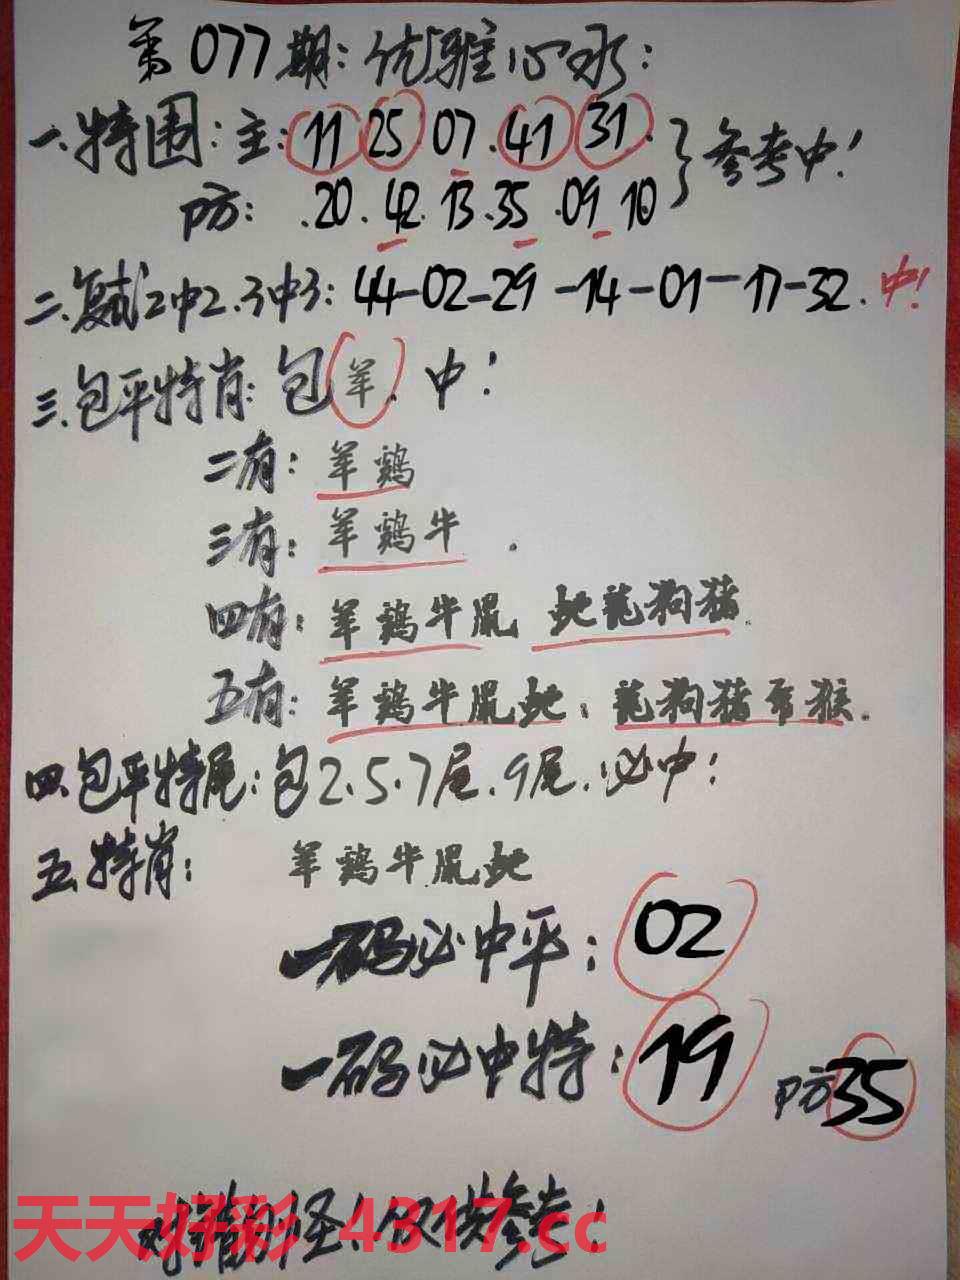 第077期:优雅心水:
一.特围:主:11 25.07.41 31.
防:.20.42.13.35.09 10
参考中!
二.复式2中2.3中3:44-02-29-14-01-17-32.中!
三.包平特肖:包羊.中!
二有:羊鸡
三有:羊鸡牛.
四有:羊鸡牛鼠 蛇龍狗猪.
五有:羊鸡牛鼠蛇:龍狗猪 猴.
四.包平特尾:包2.5.7尾.9尾.必中!
五.特肖:羊鸡牛.鼠蛇
一码必中平:02
一码必中特:19 防35
对错勿怪!仅供参考!
天天好彩 4317.cc